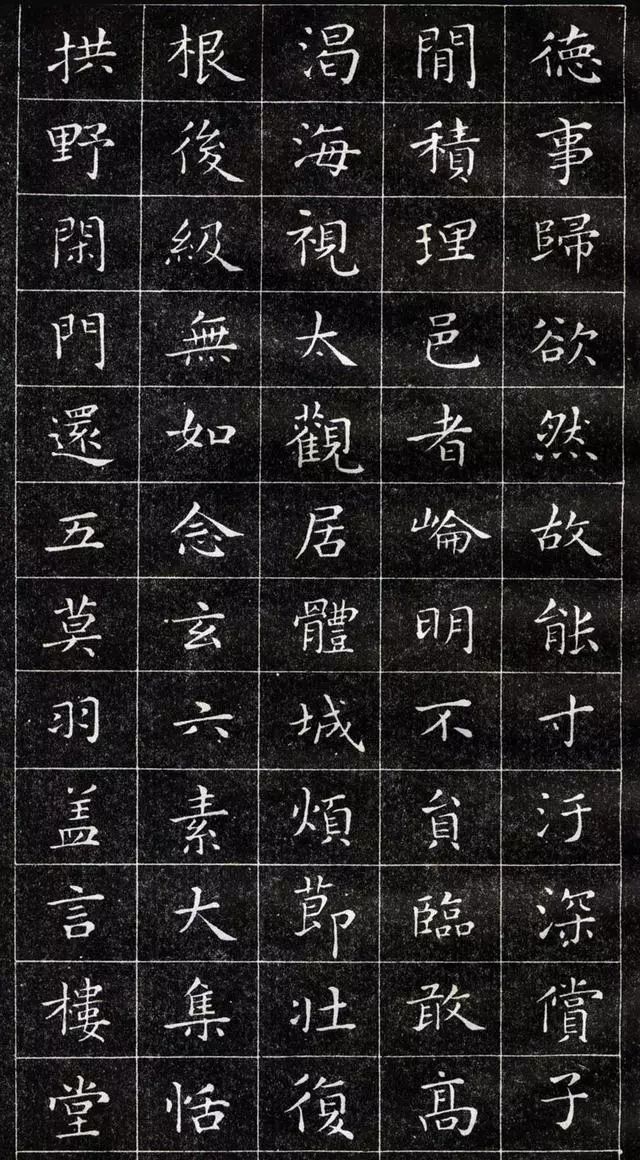 德事歸欲然故能寸汙深償子
閒積理邑者崘明不貟臨敢髙
渴海視太觀居體城煩節壯復
根後級無如念玄六素大集恬
拱野閑門還五莫羽盖言樓堂